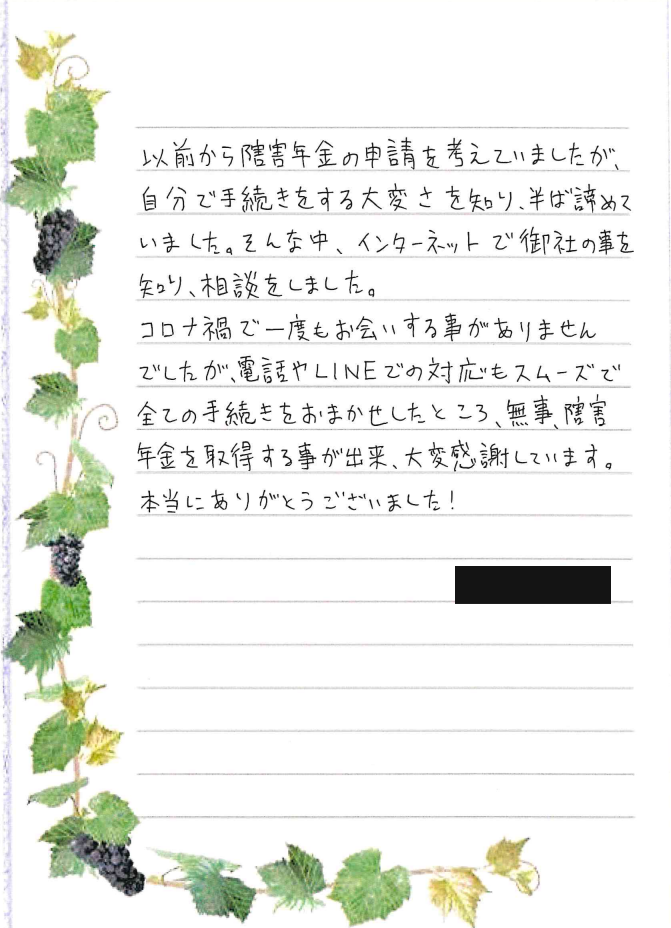 以前から障害年金の申請を考えていましたが、
自分で手続きをする大変さを知り、半ば諦めて
いました。そんな中、インターネットで御社の事を
知り、相談をしました。
コロナ禍で一度もお会いする事がありません
でしたが、電話やLINEでの対応もスムーズで
全ての手続きをおまかせしたところ、無事、障害
年金を取得する事が出来、大変感謝しています。
本当にありがとうございました!